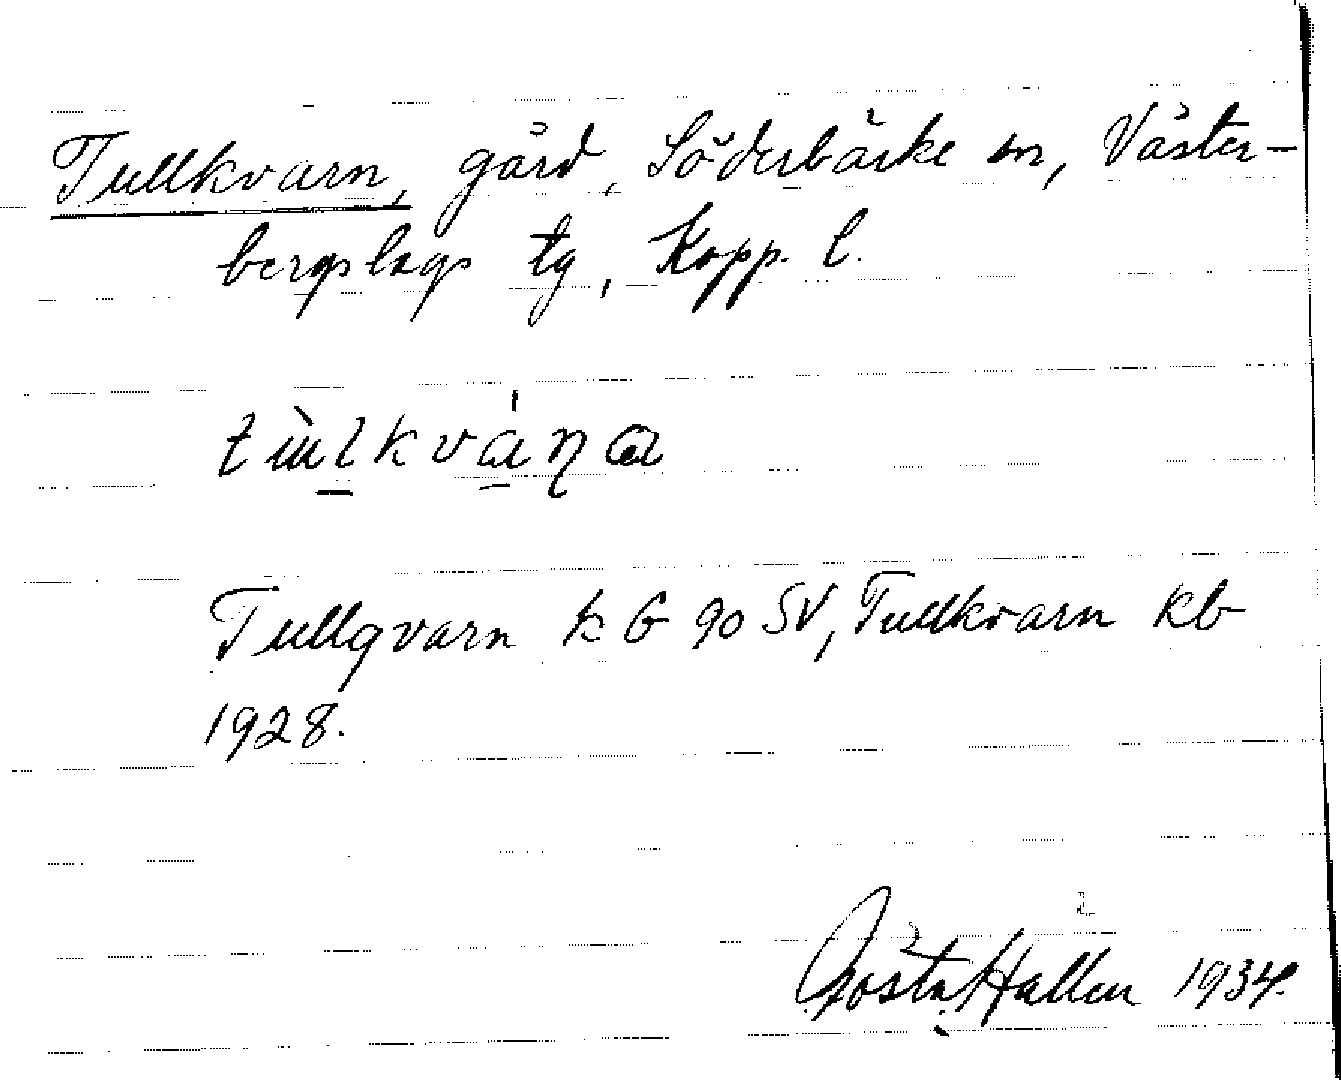 Tullkvarn, gård, Söderbärke sn, Väster-
bergslags tg, Kopp. l.
Tullqvarn k G 90 SV, Tullkvarn kb
1928.
Gösta Hallen 1934.